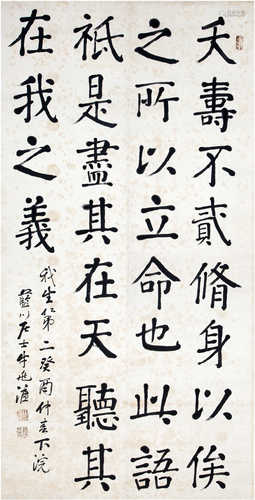 夭壽不貳脩身以俟
之所以立命也此語
祇是盡其在天聽其
在我之義
我生第二癸酉仲春下浣
藍川居士牛兆濂